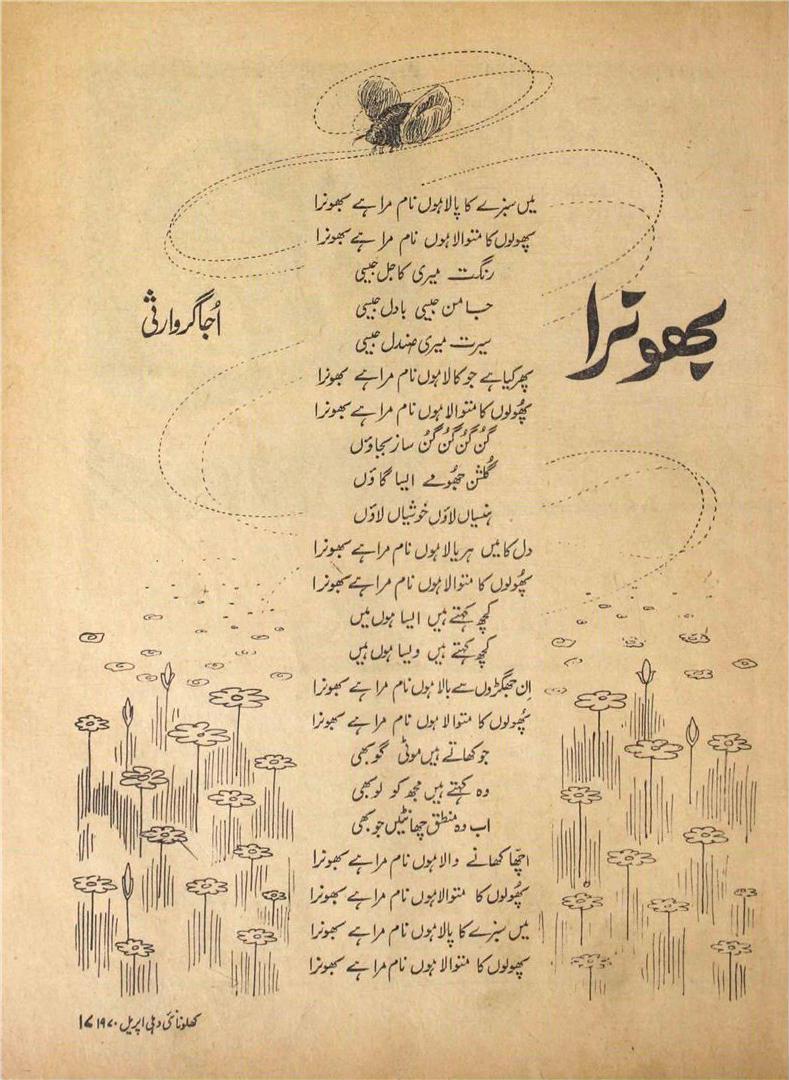 بھونرا
اُجاگر وارثی
میں سبزے کا پالا ہوں نام مرا ہے بھونرا
پھولوں کا متوالا ہوں نام مرا ہے بھونرا
رنگت میری کاجل جیسی
جامن جیسی بادل جیسی
سیرت میری صندل جیسی
پھر کیا ہے جو کالا ہوں نام مرا ہے بھونرا
پھُولوں کا متوالا ہوں نام مرا ہے بھونرا
گُن گُن گُن گُن ساز بجاؤں
گُلشن جھُومے ایسا گاؤں
ہنسیاں لاؤں خوشیاں لاؤں
دل کا میں ہریالا ہوں نام مرا ہے بھونرا
پھُولوں کا متوالا ہوں نام مرا ہے بھونرا
کچھ کہتے ہیں ایسا ہوں میں
کچھ کہتے ہیں ویسا ہوں میں
اِن جھگڑوں سے بالا ہوں نام مرا ہے بھونرا
پھُولوں کا متوالا ہوں نام مرا ہے بھونرا
جو کھاتے ہیں موٹی گوبھی
وہ کہتے ہیں مجھ کو لوبھی
اب وہ منطق چھانٹیں جو بھی
اچھّا کھانے والا ہوں نام مرا ہے بھونرا
پھُولوں کا متوالا ہوں نام مرا ہے بھونرا
میں سبزے کا پالا ہوں نام مرا ہے بھونرا
پھولوں کا متوالا ہوں نام مرا ہے بھونرا
کھلونا نئی دہلی اپریل ۱۹۷۰ ۱۷